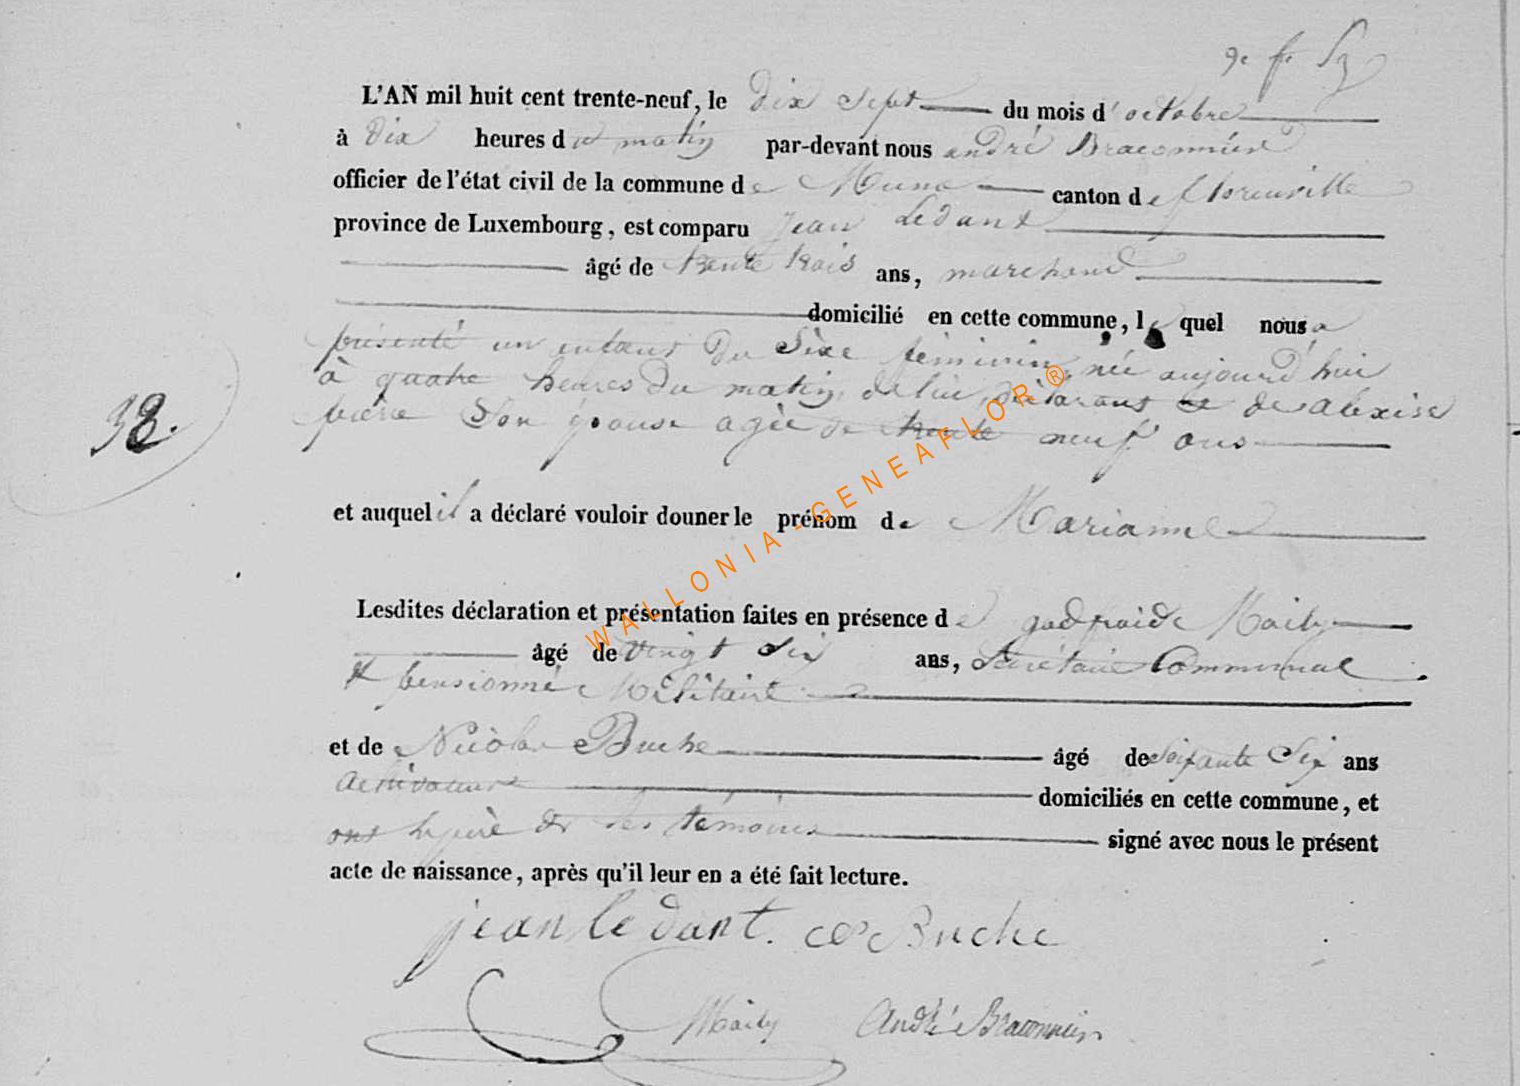 L'AN mil huit cent trente-neuf, le dix sept du mois d'octobre
à dix heures du matin par-devant nous andré Braconnier
officier de l'état civil de la commune de Muno canton de florenville
province de Luxembourg, est comparu jean Ledant
âgé de trente trois ans, marchand
domicilié en cette commune, lequel nous a
présenté un enfant du Sèxe féminin, née aujourd'hui
à quatre heures du matin, de lui, déclarant et de alexise
pierre Son épouse agée de trente neuf ans
38.
et auquel il a déclaré vouloir donner le prénom de Marianne
Lesdites déclaration et présentation faites en présence de godfroide Maily
âgé de vingt Six ans, Secrétaire Communal
& pensionné Militaire
et de Nicolas Buche âgé de soixante Six ans
domiciliés en cette commune, et
ont le père & les témoins signé avec nous le présent
acte de naissance, après qu'il leur en a été fait lecture.
jean le dant. Buche
Maily André Braconnier
WALLONIA-GENEAFLOR®